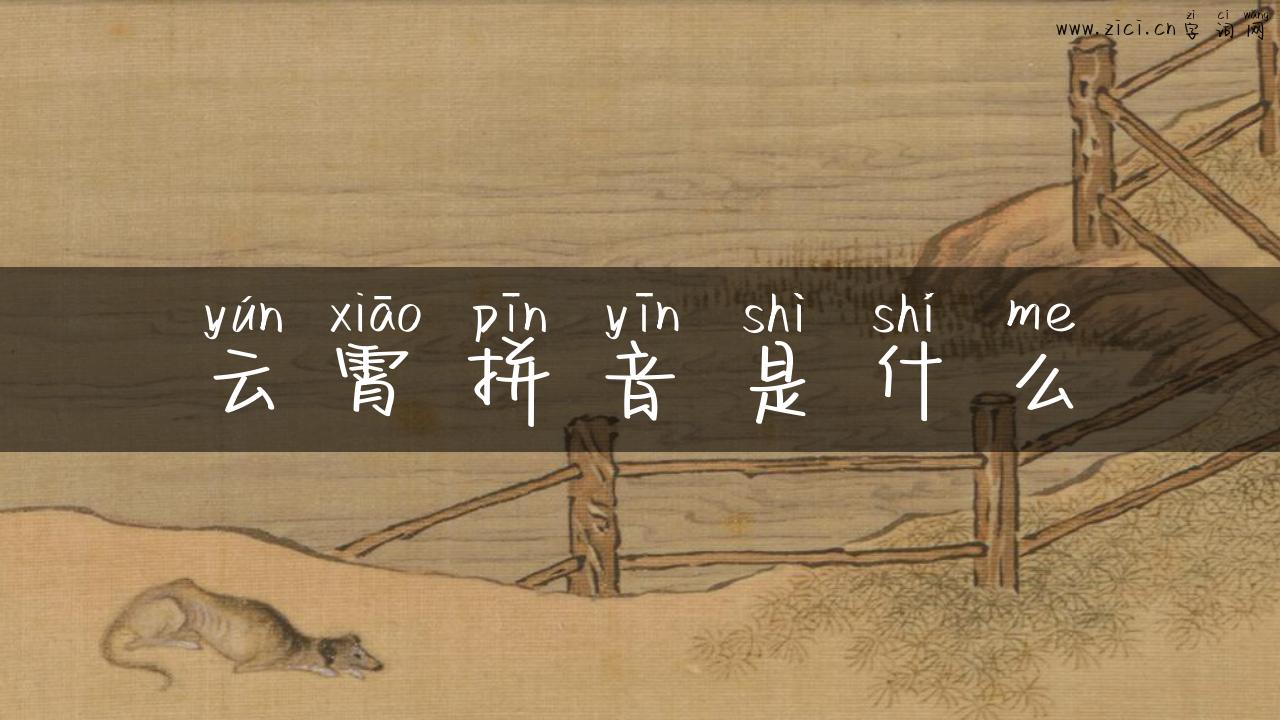 zi ci wang
www.zici.cn 字词网
yún xiāo pīn yīn shì shí me
云霄拼音是什么